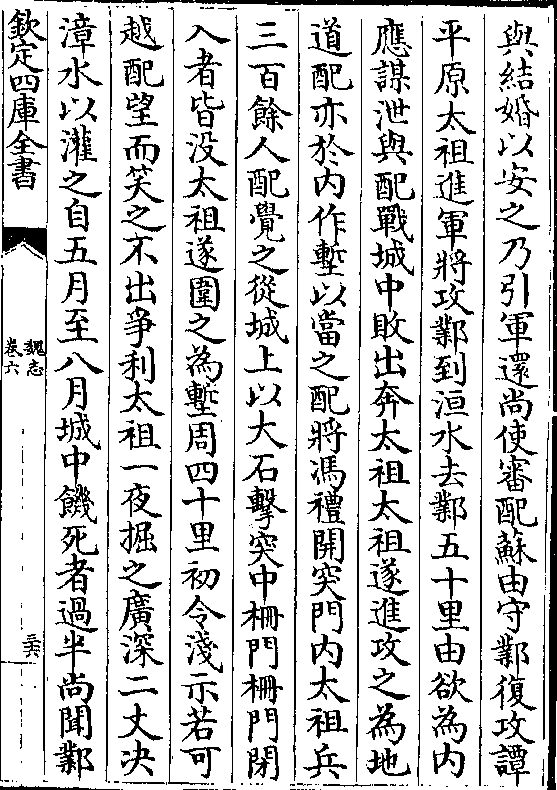 與結婚以安之乃引軍還尚使審配蘇由守鄴復攻譚
平原太祖進軍將攻鄴到洹水去鄴五十里由欲為内
應謀泄與配戰城中敗出奔太祖太祖遂進攻之為地
道配亦於内作塹以當之配將馮禮開突門内太祖兵
三百餘人配覺之從城上以大石擊突中柵門柵門閉
入者皆没太祖遂圍之為塹周四十里初令淺示若可
越配望而笑之不出爭利太祖一夜掘之廣深二丈决
漳水以灌之自五月至八月城中餓死者過半尚聞鄴
欽定四庫全書
魏志
卷六